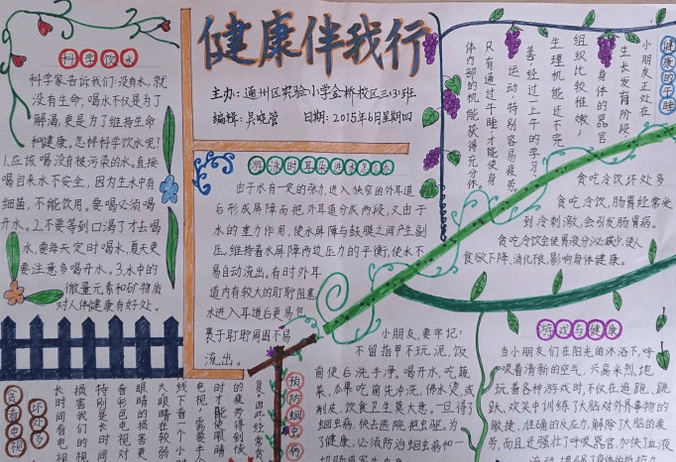 健康伴我行
主办：通州区实验小学金桥校区三(3)班
编辑：吴晓管 日期：2015年6月星期四
科学饮水
科学家告诉我们：没有水，就
没有生命，喝水不仅是为了
解渴，更是为了维持生命
和健康。怎样科学饮水呢？
1.应该喝没有被污染的水。直接
喝自来水不安全，因为生水中有
细菌，不能饮用。要喝必须喝
开水。2.不要等到口渴了才去喝
水，要每天定时喝水，夏天更
要注意多喝开水。3.水中的
微量元素和矿物质
对人体健康有好处。
游泳时耳朵进水怎么办
由于水有一定的张力，进入狭窄的外耳道
后形成屏障而把外耳道分成两段，又由于
水的重力作用，使水屏障与鼓膜之间产生副
压，维持着水屏障两边压力的平衡，使水不
易自动流出。有时外耳
道内有较大的耵聍阻塞
水进入耳道后更易包
裹于耵聍周围不易
流出。
健康的午睡
小朋友正处在
生长发育阶段，
身体的器官
组织比较稚嫩，
生理机能还不完
善，经过一上午的学习、
运动，特别容易疲劳。
只有通过午睡才能使身
体内部的机能获得充分休
贪吃冷饮坏处多
贪吃冷饮，肠胃经常受
到冷刺激，会引发肠胃病。
贪吃冷饮会使胃液分泌减少，使人
食欲下降，消化很，影响身体健康。
游戏与健康
当小朋友们在阳光的沐浴下，呼
吸着清新的空气，兴高采烈地
玩着各种游戏时，不仅在追跑、跳
跃、欢笑中训练了大脑对外界事物的
敏捷、准确的反应力，解除了大脑的疲
劳，而且还强壮了呼吸器官，加快了血液
预防蛔虫病
小朋友，要牢记：
不留指甲不玩泥，饭
前便后洗干净。喝开水，吃蔬
菜，瓜果吃前先冲洗，沸水烫，或
削皮，饮食卫生莫大意。一旦得了
蛔虫病，快去医院把虫驱。为
了健康，必须防治蛔虫病和一
贪看电视
坏处多
长时间看电视
损害我们的视
特别是长时间
看彩色电视对
眼睛的损害更
大，眼睛在较弱
线下看一个小时
电视，需要半个
时才能使眼睛
的疲劳得到恢
复。因此经常贪